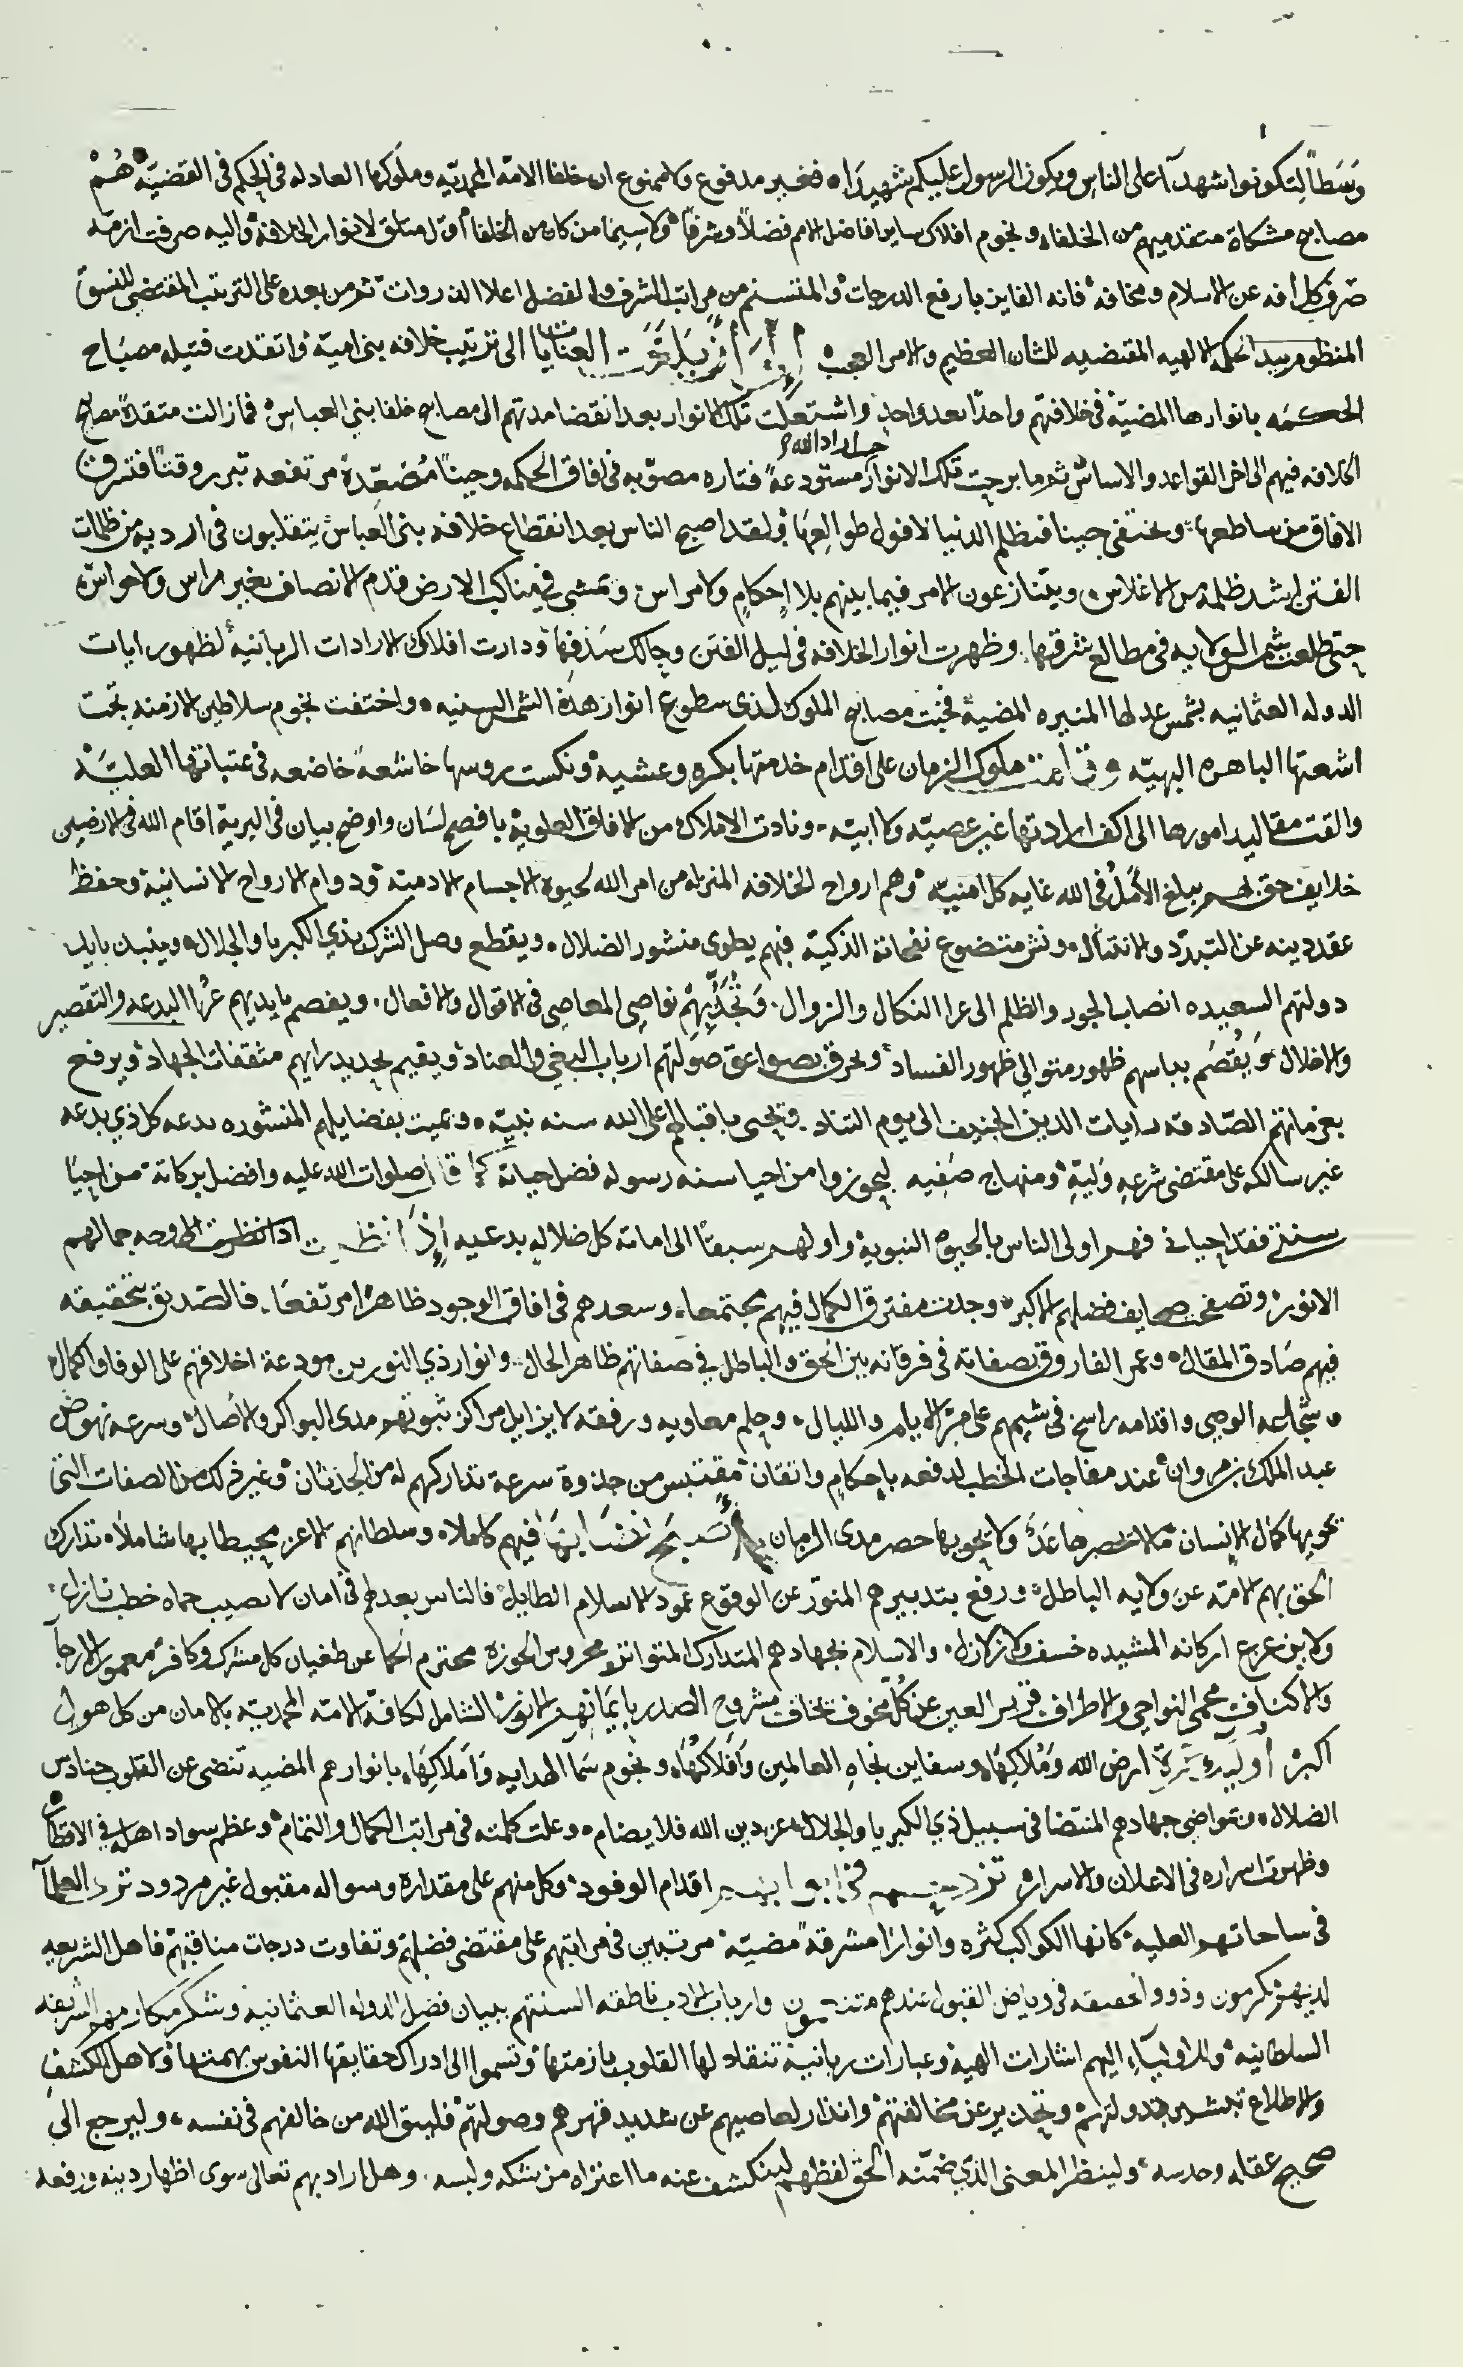 وَسَطاً لِتكونوا شهدآ على الناس ويكون الرسول عليكم شهيدا ه فغير مدفوع ولا ممنوع ان خلفا الامة المحمديّه وملوكها العادله فى الحكم فى القضيّه هُمْ
مصابيح مشكاة متقدميهم من الخلفاء ونجوم افلاك ساير افاضل الامم فضلاً وشرفاً ولا سيما من كان من الخلفا أوّل متلق لانوار الخلافة واليه صرفت ازمة
صَرف كل أفه عن الاسلام ومخافه فانه الفايز بارفع الدرجات والمتسنم من مراتب الشرف والفضل اعلا الذروات ثم من بعده على الترتيب المقتضى للنسق
المنظوم بيد الحكمة الالهيه المقتضيه للشان العظيم والامر العجب العنايات الى ترتيب خلافه بنى امية واتقدت فتيله مصبَاح
الحكمه بانوارها المضيّة فى خلافتهم واحدًا بعد واحدٍ واشتعلت تلك الانوار بعد انقضا مدتهم الى مصابيح خلفا بنى العباس فما زالت متقدة مصابيح
حيث اراد الله
الخلافه فيهم الى اخر القواعد والاساس ثم ما برحت تلك الانوار مستودعة فتاره مصوّبه فى افاق الحكمه وحيناً مُصَعّدة مرتفعه تبرر وقتاً فتشرق
الافاق من ساطعها وتختفى حينا فتظلم الدنيا لافول طوالعها ولقد اصبح الناس بعد انقطاع خلافه بنى العباس يتقلبون فى اردية من ظلمات
الفتن اشد ظلمة من الاغلاس ويتنازعون الامر فيما بينهم بلا إحكامٍ ولا مراس وتمشى فى مناكب الارض قدم الانصاف بغير مراس ولا حواس
حتى طلعت شمس الولايه فى مطالع شرقها وظهرت انوار الخلافه فى ليل الفتن وحالك سَدَفِها ودارت افلاك الارادات الربانية لظهور ايات
الدوله العثمانيه بشمس عدلها المنيره المضية فخبت مصابيح الملوك لدى سطوع انوار هذه الشمس السنيه واختفت نجوم سلاطين الازمنه تحت
اشعتها الباهره البهيّه وقامت ملوك الزمان على اقدام خدمتها بكرة وعشية ونكست روسها خاشعة خاضعه فى عتباتها العليَّه
والقت مقاليد امورها الى اكف ارادتها غير عصيّه ولا ابيّه ونادت الاملاك من الافلاك العلوية بافصح لسَان واوضح بيان فى البرية اقام الله فى الارضين
خلايف حق لهم بلغ الأمل فى الله غايه كل امنيّه وهم ارواح الخلافه المنزله من امر الله لحيوة الاجسام الادمية ودوام الارواح الانسانية وحفظ
عقد دينه عن التبدّد والانتثال ونش متضوع نفحاته الذكيّة فبهم يطوى منشور الضلال ويقطع وصل الشرك بذي الكبريا والجلال وينبذ بايد
دولتهم السعيده انصاب الجور والظلم الى عرا النكال والزوال وَتُجَذُّ بِهِمْ نواصى المعاصى فى الاقوال والافعال ويفصم بايديهم عُرَا البدعه والتقصير
والاخلال وَيُقصَم بباسهم ظهور متوالي ظهور الفساد وتحرق بصواعق صَولتهم ارباب البغي والعناد ويقيم بحديد رايهم مثقفات الجهاد ويرفع
بعزماتهم الصّادقه رايات الدين الحنيف الى يوم التناد وتحيى باقبالهم على الله سنه نبيّه وتميت بفضايلهم المنشوره بدعه كل ذي بدعه
غير سالكه على مقتضى شرعهِ وَليهِ ومنهاج صَفِيه ليحوزوا من احيا سنه رسوله فضل حياته كما قال صلوات الله عليه وافضل بركاته من احيَا
سنتي فقد احيانى فهم اولى الناس بالحيوة النبوية واولهم سبقًا الى اماته كل ضلاله بدعيه اذا نظرت الى اوجه جمالهم
الانور وتصفحت صحايف فضلهم الاكبر وجدت مفترق الكمال فيهم مجتمعا وسعدهم فى افاق الوجود ظاهرا مرتفعَا فالصّديق بتحقيقه
فيهم صَادق المقال وعمر الفاروق بصفاته فى فرقانه بين الحق والباطل في صفاتهم ظاهر الحال وانوار ذي النورين مودعة اخلاقهم على الوفا والكمال
وشجاعه الوصى واقدامه راسخ فى شيمهم على مرّ الايام والليال وحلم معاويه ورفقه لا يزايل مراكز ثبوتهم مدى البواكر والاصال وسرعه نهوض
عبد الملك بن مروان عند مفاجات الخطب لدفعه بإحكامٍ واتقان مقتبس من جذوة سرعة تداركهم له من الحدثان وغير ذلك من الصفات التى
يحويها كمال الانسان مما لا تنحصر عدّا ولا يحويها حصر مدى الزمان فيهم كاملا وسلطانهم الاعز محيطا بها شاملا تدارك
الحق بهم الامّة عن ولايه الباطل ورفع بتدبيرهم المنوّر عن الوقوع عمود الاسلام الطايل فالناس بعدهم فى امان لا تصيب حماه خطب نازل
ولا يزعزع اركانه المشيده خسف ولا زلازل والاسلام بجهادهم المتدارك المتواتر محروس الحوزة محترم الحما عن طغيان كل مشرك وكافر معمور الارجآ
والاكناف محمى النواحى والاطراف قرير العين عن كلّ مخوف يخاف مشروح الصدر بايمَانِهم الانور الشامل لكافّة الامّه المحمديّه بالامان من كل هول
اكبر ارض الله وَمُلاكِهَا وسفاين نجاهِ العالمين وَافلاكهَا ونجوم سَما الهدايه وَاملاكِهَا بانوارهم المضيه تنضى عن القلوب حنادس
الضلال وبمواضى جهادهم المنتضا فى سبيل ذي الكبريا والجلال عز دين الله فلا يضام وعلت كلمته فى مراتب الكمال والتمام وعظم سواد اهله في الاقطار
وظهرت اسراره فى الاعلان والاسرار اقدام الوفود وكل منهم على مقداره وسواله مقبول غير مردود العلمآ
فى ساحاتهم العليه كانها الكواكب كثره وانوارا مشرقة مضيّه مرتبين فى مراتبهم على مقتضى فضلهم وتفاوت درجات مناقبهم فاهل الشريعه
لديهم مكرمون وذووا الحقيقه فى رياض القبول عندهم وارباب الادب ناطقه السنتهم ببيان فضل الدوله العثمانيه وشكر مكارمهم الشريفه
السلطانيه وللاوليَآء اليهم اشارات الهية وعبارات ربانية تنقاد لها القلوب بازمتها وتسموا الى ادراك حقايقها النفوس بهمتها ولاهل الكشف
والاطلاع تبشير بدولتهم وتحذير عن مخالفتهم وانذار لعاصيهم عن شديد قهرهم وصولتهم فليتق الله من خالفهم فى نفسه وليرجع الى
صحيح عقله وحدسه ولينظر المعنى الذي ضمّنه الحق لفظهم لينكشف عنه ما اعتراه من شكه ولبسه وهل اراد بهم تعالى سوى اظهار دينه ورفعه